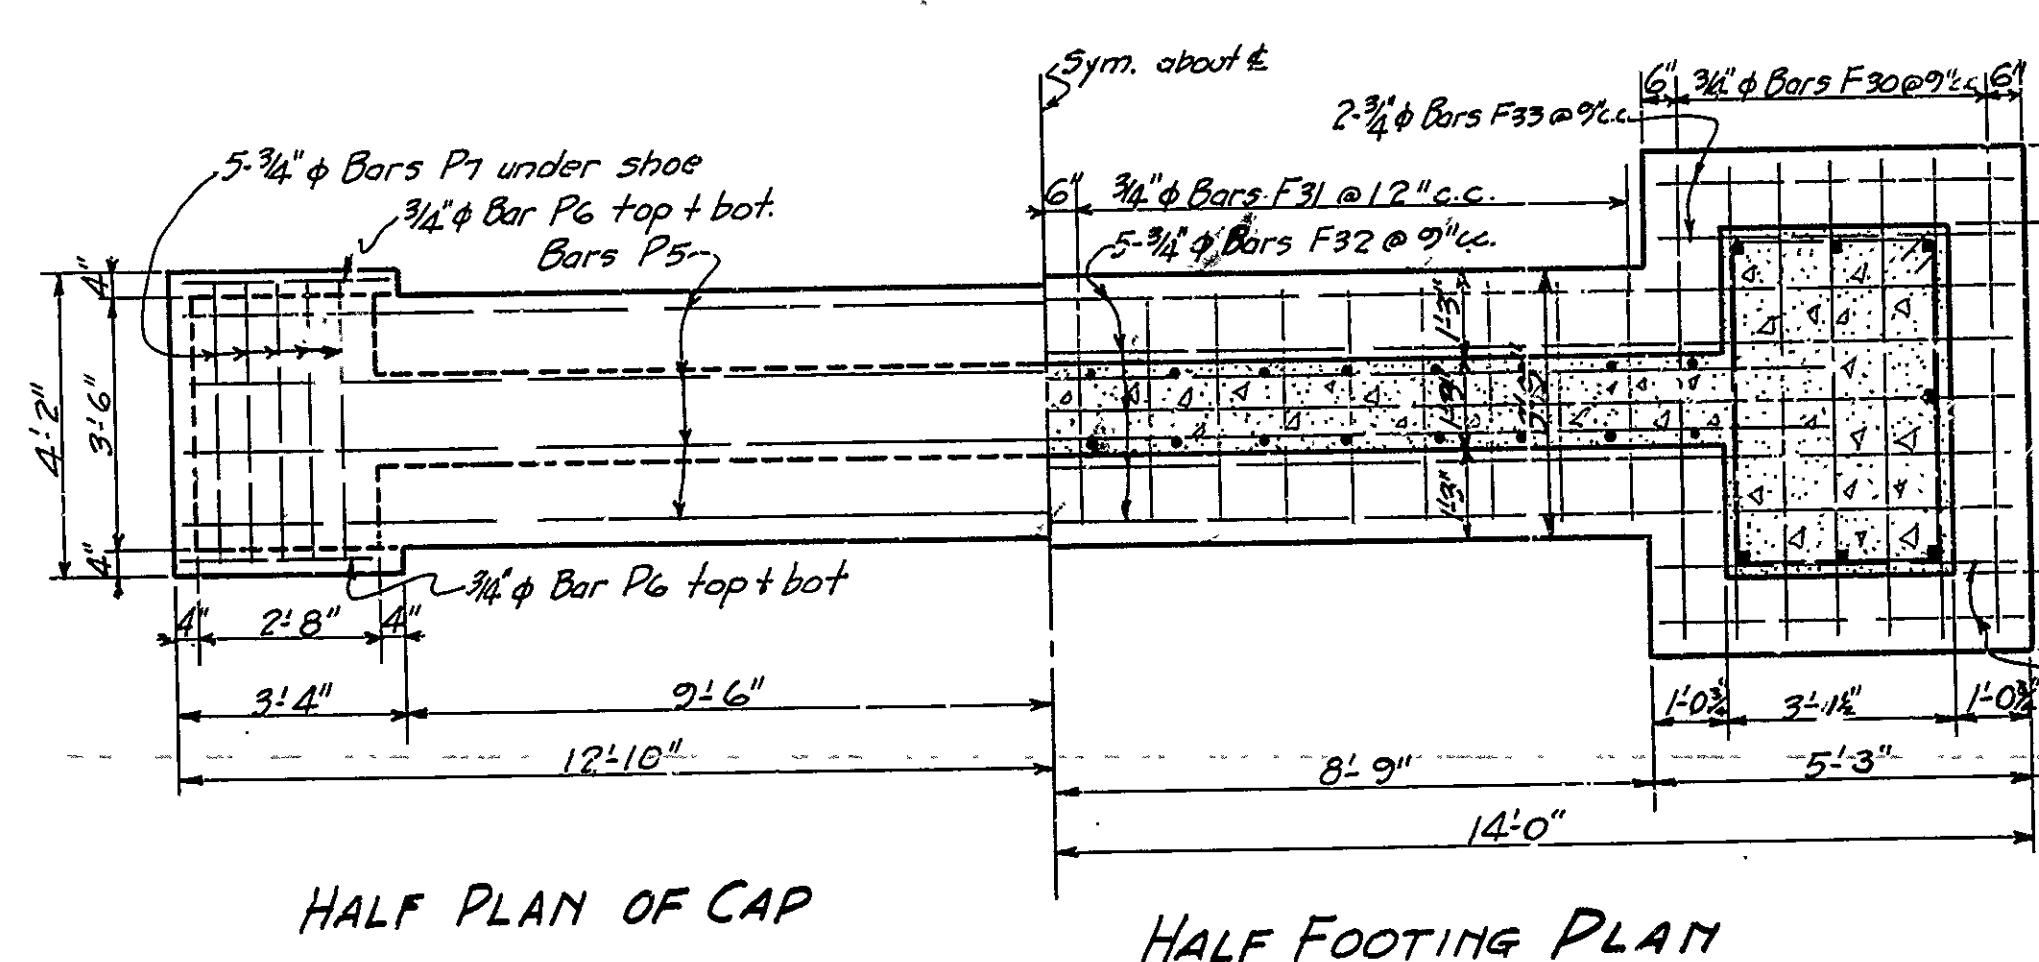 Sym. about ℄
6" 3/4" ϕ Bars F30 @ 9" c.c. 6"
2-3/4" ϕ Bars F33 @ 9" c.c.
5-3/4" ϕ Bars P7 under shoe
3/4" ϕ Bar P6 top + bot.
Bars P5
6" 3/4" ϕ Bars F31 @ 12" c.c.
5-3/4" ϕ Bars F32 @ 9" c.c.
4"
4'-2"
3'-6"
4"
1'-3"
1'-3"
3/4" ϕ Bar P6 top + bot
4" 2'-8" 4"
3'-4" 9'-6"
12'-10"
1'-0 3/4" 3'-1 1/2" 1'-0 3/4"
8'-9" 5'-3"
14'-0"
HALF PLAN OF CAP
HALF FOOTING PLAN